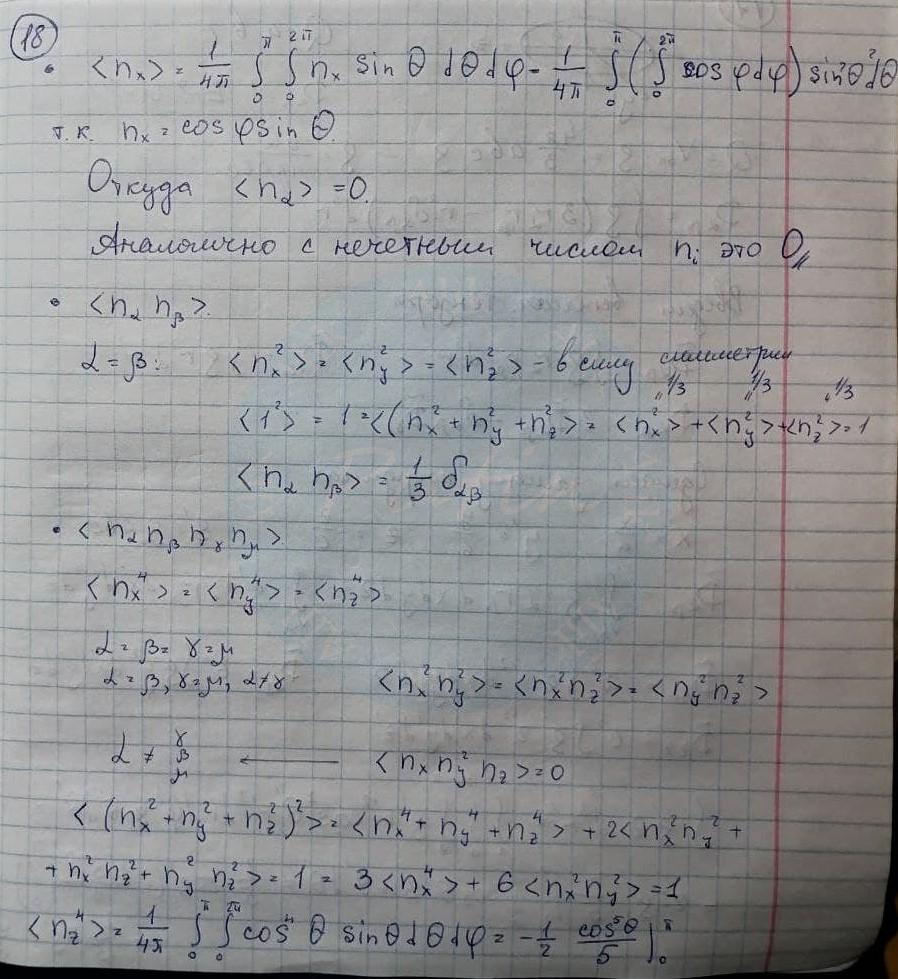 18
• <n_x> = 1/4π ∫₀^π ∫₀^2π n_x sin θ dθ dφ = 1/4π ∫₀^π (∫₀^2π cos φ dφ) sin²θ dθ
т.к. n_x = cos φ sin θ.
Откуда <n_α> = 0.
Аналогично с нечетным числом n_i это 0,,
• <n_α n_β>.
α = β: <n_x²> = <n_y²> = <n_z²> - в силу симметрии
"1/3 "1/3 "1/3
<1²> = 1 = <(n_x² + n_y² + n_z²> = <n_x²> + <n_y²> + <n_z²> = 1
<n_α n_β> = 1/3 δ_αβ
• <n_α n_β n_γ n_μ>.
<n_x⁴> = <n_y⁴> = <n_z⁴>
α = β = γ = μ
α = β, γ = μ, α ≠ γ <n_x² n_y²> = <n_x² n_z²> = <n_y² n_z²>
α ≠ γ β μ ← <n_x n_y² n_z> = 0
<(n_x² + n_y² + n_z²)²> = <n_x⁴ + n_y⁴ + n_z⁴> + 2<n_x² n_y² +
+ n_x² n_z² + n_y² n_z²> = 1 = 3<n_x⁴> + 6<n_x² n_y²> = 1
<n_z⁴> = 1/4π ∫₀^π ∫₀^2π cos⁴ θ sin θ dθ dφ = -1/2 cos⁵θ/5 |₀^π